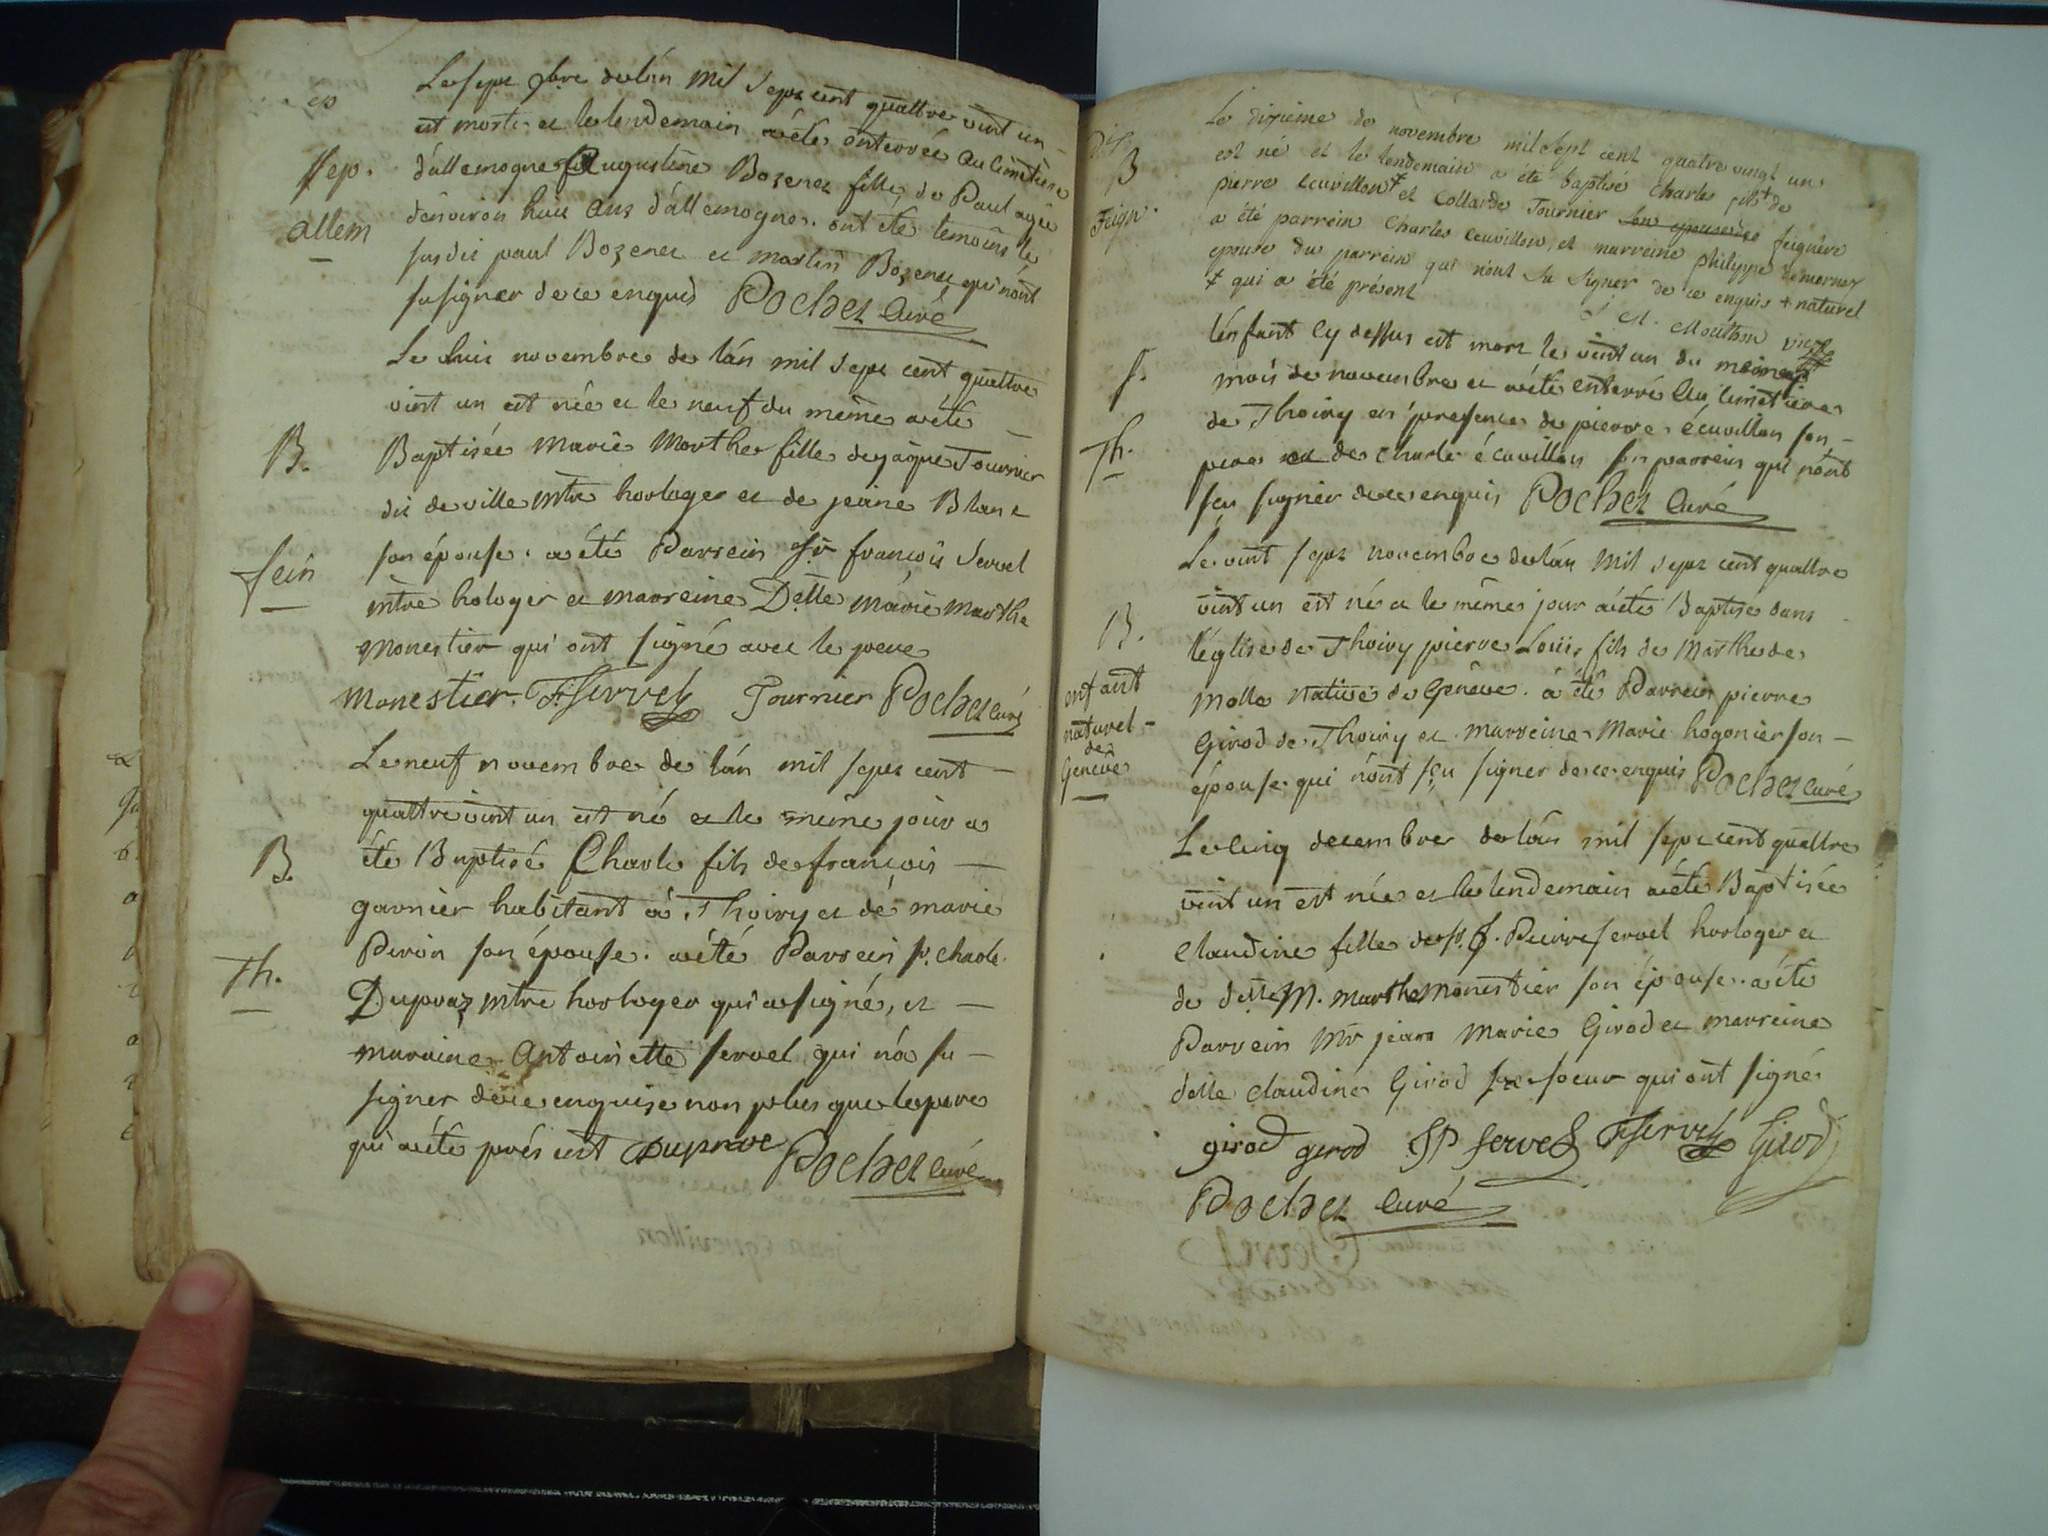 Le sept 9bre de lán mil sept cent quattre vint un
est morte et le lendemain a été enterrée au cimetiere
sep. dállemogne Augustine Bozenet fille de Paul agée
allem dénviron huit ans dállemogne. ont été temoins le
susdit paul Bozenet et martin Bozenet qui nónt
su signer de ce enquis Pochet Curé
Le huit novembre de lán mil sept cent quattre
vint un est née et le neuf du même a été
B. Baptisée marie Marthe fille de jâque Tournier
dit deville mtre horloger et de jeane Blanc
fein son épouse. a été Parrein Sr. françois Servel
mtre hologer et marreine Delle marie Marthe
Monestier qui ont signé avec le pere
Monestier. F. Servel Tournier Pochet curé
Le neuf novembre de lán mil sept cent
quattre vint un est né et le même jour a
B. été Baptisé Charle fils de françois
garnier habitant à Thoiry et de marie
Th. Peron son épouse. a été Parrein Sr. charle
Dupraz mtre horloger qui a signé, et
maraine Antoinette servel qui n'a su
signer de ce enquise non plus que le pere
qui a été présent Duprae Pochet Curé
Le dixieme de novembre mil sept cent quatre vingt un
B est né et le lendemain a été baptisé Charles fils + de
pierre ecuvillon ‡ et Collarde Tournier son epouse de feignère
Feign. a été parrein Charles Ecuvillon, et marreine philippe
epouse du parrein qui n'ont su signer de ce enquis + naturel
‡ qui a été présent
Mouthon vicre
lénfant cy dessus est mort le vint un du meme
s. mois de novembre et a été enterré au cimetiere
de Thoiry en presence de pierre écuvillon son
Th. pere et de charle écuvillon son parrein qui nónt
seu signer de ce enquis Pochet Curé
Le vint sept novembre de lán mil sept cent quattre
vint un est né et le même jour a été Baptisé dans
B. léglise de Thoiry pierre Louis fils de Marthe de
enfant molle native de Genêve. a été Parrein pierre
naturel Girod de Thoiry et marreine Marie hogonier son
de Genêve épouse qui nónt seu signer de ce enquis Pochet curé
Le cinq decembre de lán mil sept cent quattre
vint un est née et le lendemain a été Baptisée
Claudine fille de sr. J. Pierre servel horloger et
de delle M. marthe Monestier son épouse. a été
Parrein Mr jean Marie Girod et marreine
delle claudine Girod sa soeur qui ont signé
girod girod JP Servel F. Servel Girod
Pochet Curé